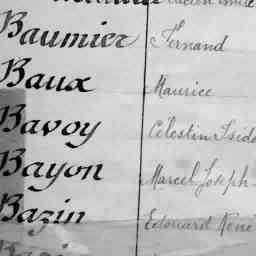 Baumier Fernand
Baux Maurice
Bavoy Célestin Isido
Bayon Marcel Joseph
Bazin Edouard René